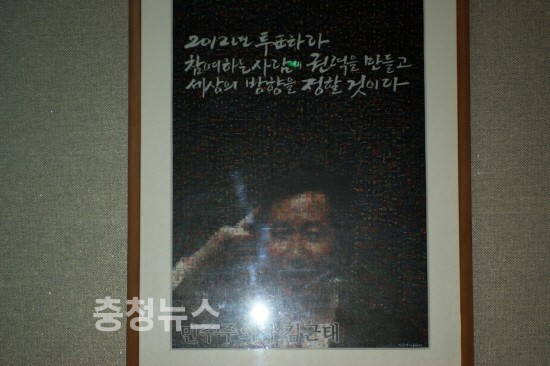 2012년 투표하라
참여하는 사람이 권력을 만들고
세상의 방향을 정할 것이다
충청뉴스
민주주의자 김근태